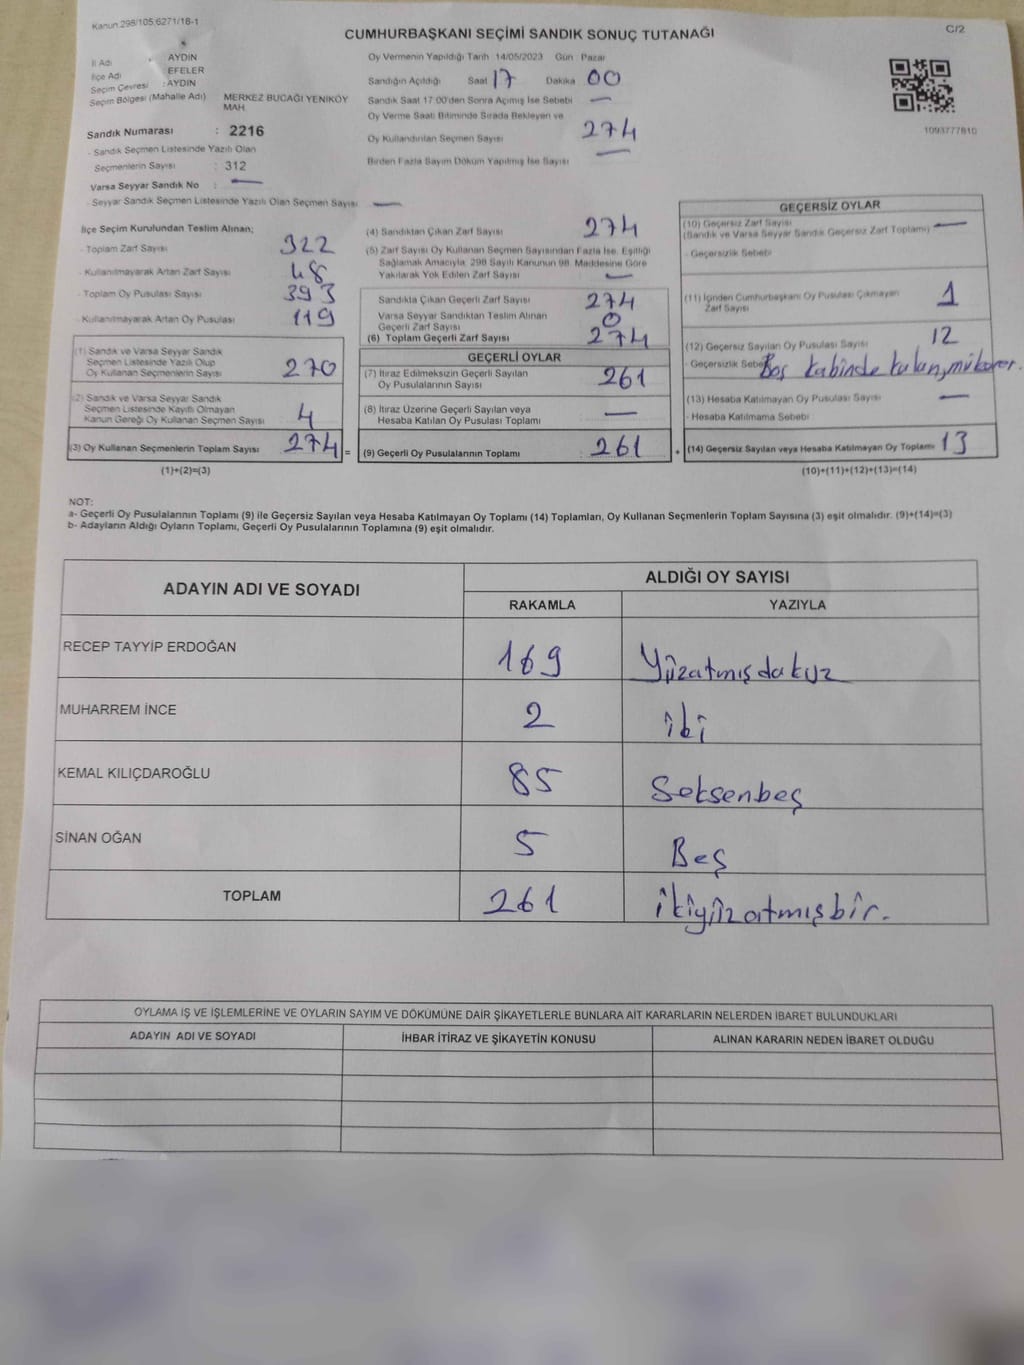 Kanun 298/105.6271/18-1
CUMHURBAŞKANI SEÇİMİ SANDIK SONUÇ TUTANAĞI
C/2
İl Adı : AYDIN
İlçe Adı EFELER
Seçim Çevresi : AYDIN
Seçim Bölgesi (Mahalle Adı) MERKEZ BUCAĞI YENİKÖY
MAH
Sandık Numarası : 2216
- Sandık Seçmen Listesinde Yazılı Olan
Seçmenlerin Sayısı : 312
Varsa Seyyar Sandık No : —
- Seyyar Sandık Seçmen Listesinde Yazılı Olan Seçmen Sayısı —
Oy Vermenin Yapıldığı Tarih 14/05/2023 Gün Pazar
Sandığın Açıldığı Saat 17 Dakika 00
Sandık Saat 17:00'den Sonra Açımış İse Sebebi —
Oy Verme Saati Bitiminde Sırada Bekleyen ve
Oy Kullandırılan Seçmen Sayısı 274
Birden Fazla Sayım Döküm Yapılmış İse Sayısı —
1093777810
İlçe Seçim Kurulundan Teslim Alınan;
- Toplam Zarf Sayısı 322
- Kullanılmayarak Artan Zarf Sayısı 48
- Toplam Oy Pusulası Sayısı 393
- Kullanılmayarak Artan Oy Pusulası 119
(1) Sandık ve Varsa Seyyar Sandık
Seçmen Listesinde Yazılı Olup
Oy Kullanan Seçmenlerin Sayısı 270
(2) Sandık ve Varsa Seyyar Sandık
Seçmen Listesinde Kayıtlı Olmayan
Kanun Gereği Oy Kullanan Seçmen Sayısı 4
(3) Oy Kullanan Seçmenlerin Toplam Sayısı 274 =
(1)+(2)=(3)
(4) Sandıktan Çıkan Zarf Sayısı 274
(5) Zarf Sayısı Oy Kullanan Seçmen Sayısından Fazla İse, Eşitliği
Sağlamak Amacıyla, 298 Sayılı Kanunun 98. Maddesine Göre
Yakılarak Yok Edilen Zarf Sayısı —
Sandıkta Çıkan Geçerli Zarf Sayısı 274
Varsa Seyyar Sandıktan Teslim Alınan
Geçerli Zarf Sayısı 0
(6) Toplam Geçerli Zarf Sayısı 274
GEÇERLİ OYLAR
(7) İtiraz Edilmeksizin Geçerli Sayılan
Oy Pusulalarının Sayısı 261
(8) İtiraz Üzerine Geçerli Sayılan veya
Hesaba Katılan Oy Pusulası Toplamı —
(9) Geçerli Oy Pusulalarının Toplamı : 261 +
GEÇERSİZ OYLAR
(10) Geçersiz Zarf Sayısı
(Sandık ve Varsa Seyyar Sandık Geçersiz Zarf Toplamı) —
- Geçersizlik Sebebi
(11) İçinden Cumhurbaşkanı Oy Pusulası Çıkmayan
Zarf Sayısı 1
(12) Geçersiz Sayılan Oy Pusulası Sayısı 12
- Geçersizlik Sebebi Boş kabinde
(13) Hesaba Katılmayan Oy Pusulası Sayısı —
- Hesaba Katılmama Sebebi
(14) Geçersiz Sayılan veya Hesaba Katılmayan Oy Toplamı 13
(10)+(11)+(12)+(13)=(14)
NOT:
a- Geçerli Oy Pusulalarının Toplamı (9) ile Geçersiz Sayılan veya Hesaba Katılmayan Oy Toplamı (14) Toplamları, Oy Kullanan Seçmenlerin Toplam Sayısına (3) eşit olmalıdır. (9)+(14)=(3)
b- Adayların Aldığı Oyların Toplamı, Geçerli Oy Pusulalarının Toplamına (9) eşit olmalıdır.
ADAYIN ADI VE SOYADI
ALDIĞI OY SAYISI
RAKAMLA YAZIYLA
RECEP TAYYİP ERDOĞAN 169 Yüzatmışdokuz
MUHARREM İNCE 2 iki
KEMAL KILIÇDAROĞLU 85 Seksenbeş
SİNAN OĞAN 5 Beş
TOPLAM 261 ikiyüzatmışbir.
OYLAMA İŞ VE İŞLEMLERİNE VE OYLARIN SAYIM VE DÖKÜMÜNE DAİR ŞİKAYETLERLE BUNLARA AİT KARARLARIN NELERDEN İBARET BULUNDUKLARI
ADAYIN ADI VE SOYADI İHBAR İTİRAZ VE ŞİKAYETİN KONUSU ALINAN KARARIN NEDEN İBARET OLDUĞU